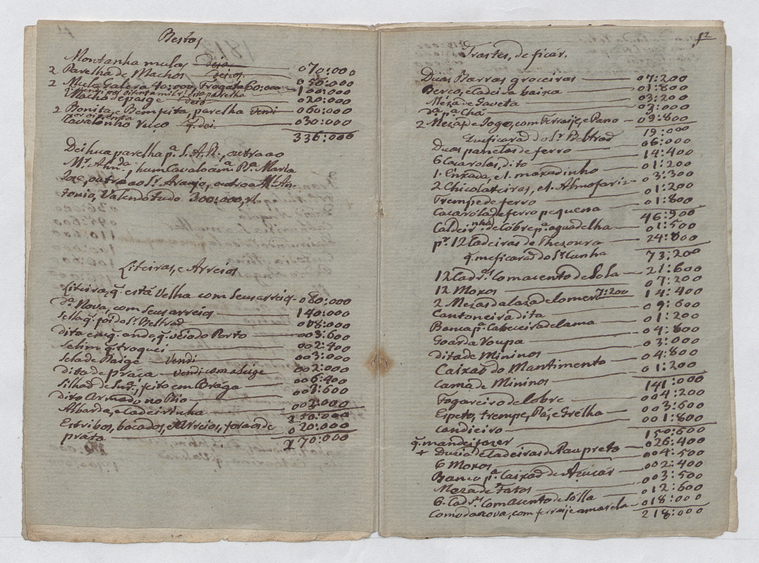 Bestas,
Montanha mulas — deja — 070:000
2 Parelha de Machos — 050:000
2 Mula Galera 40:000, Fragata 60:000 — 100:000
Macho de paige — 020:000
2 Bonita, e Bemfeita, parelha vendi — 060:000
Cavalinho ruço — 030:000
336:000
Dei hua parelha pª S.A.R., outra ao
Mel Ann. da, hum Cavalo a mª Pª Maria
Joze, outro ao Sr Araujo, outro a Ml An,
tonio, Valendo tudo 300:000, rs.
Liteiras, e Arreios
Liteira, q está Velha com seus arreios — 080:000
Da Nova, com seus arreios — 140:000
Sella q foi do Sr Beltrad — 008:000
Dita em q ando, q veio do Porto — 003:600
Selim q troquei — 002:400
Sela de Paige — Vendi — 003:000
Dito de praça — vendi com a luige — 002:000
Silhad de feito em Braga — 006:400
Dito Armado no Rio — 003:600
Albarda, e Cadeirinha — 002:000
250:000
Estribos, bocados, e Arreios, fora os de — 020:000
prata — 270:000
52
Trastes, de ficár.
Duas Barras groceiras — 07:200
Berço, e Cadeira baixa — 01:800
Meza de Gaveta — 03:200
Da pª Chá — 03:000
2 Mezas de Jogo, com Ferraije, e Pano — 09:800
19:000
q ficarad do Sr Beltrad — 06:000
Duas panelas de ferro — 14:400
6 Caçarolas, dito — 03:300
1. Enxada, e 1. maxadinho — 01:200
2 Chicolateiras, e 1. Almofariz — 01:200
Trempe de ferro — 01:800
Caçarola de ferro pequena — 46:900
Caldeirinha de Cobre pª agua delha — 01:500
pr 12 Cadeiras do Thezouro — 24:800
q me ficarad do Sr Cunha — 73:200
12 Cadras Com asento de Sola — 21:600
12 Moxos — 07:200
2 Mezas 7:200 — 14:400
Cantoneira dita — 09:600
Banca pª Cabeceira de Cama — 01:200
Goarda Roupa — 04:800
Dita de Mininos — 03:000
Caixad do Mantimento — 04:800
Cama de Mininos — 01:200
141:000
Fogareiro de Cobre — 004:200
Espeto, trempe, Pá, e Grelha — 003:600
Candieiro — 001:800
150:600
q mandei fazer
+ Duzia de Cadeiras de Pau preto — 026:400
6 Moxos — 004:500
Banco pª Caixad de Açucar — 002:400
Meza de Fatos — 003:500
6. Cadras Com asento de Solla — 012:600
Comoda nova, com ferraije amarela — 018:000
218:000